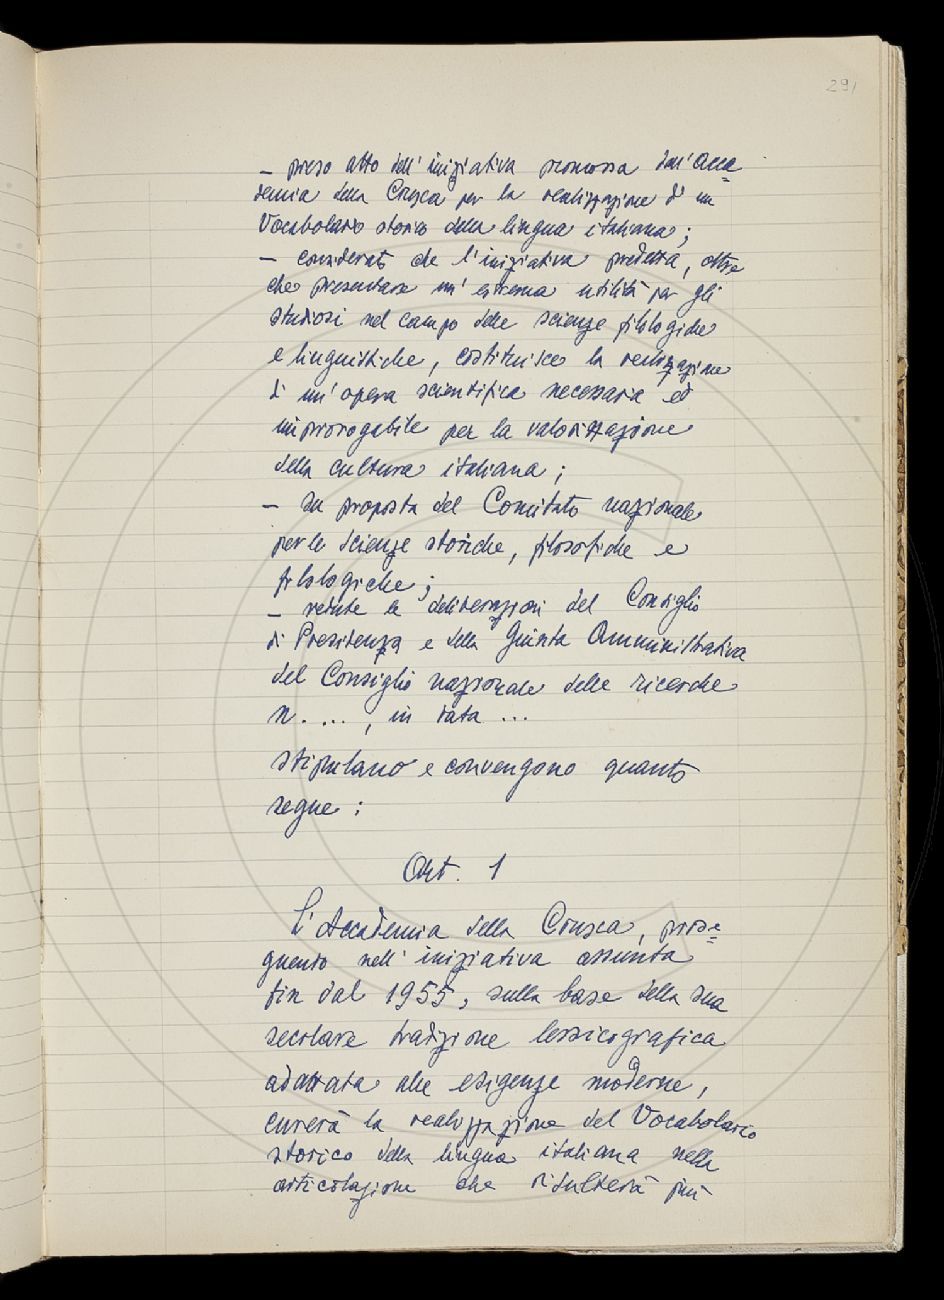 291
– preso atto dell'iniziativa promossa dall'Acca=
demia della Crusca per la realizzazione di un
Vocabolario storico della lingua italiana;
– considerato che l'iniziativa predetta, oltre
che presentare un'estrema utilità per gli
studiosi nel campo delle scienze filologiche
e linguistiche, costituisce la realizzazione
di un'opera scientifica necessaria ed
improrogabile per la valorizzazione
della cultura italiana;
– su proposta del Comitato nazionale
per le scienze storiche, filosofiche e
filologiche;
– vedute le deliberazioni del Consiglio
di Presidenza e della Giunta Amministrativa
del Consiglio nazionale delle ricerche
n. ..., in data ...
stipulano e convengono quanto
segue:
Art. 1
L'Accademia della Crusca, prose=
guendo nell'iniziativa assunta
fin dal 1955, sulla base della sua
secolare tradizione lessicografica
adattata alle esigenze moderne,
curerà la realizzazione del Vocabolario
storico della lingua italiana nella
articolazione che risulterà più